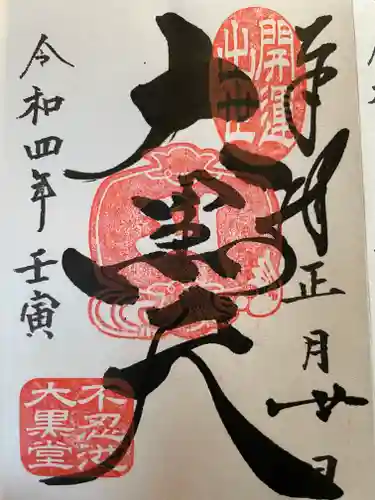 奉拝
正月廿一日
開運
出世
大黒天
令和四年 壬寅
不忍池
大黒堂